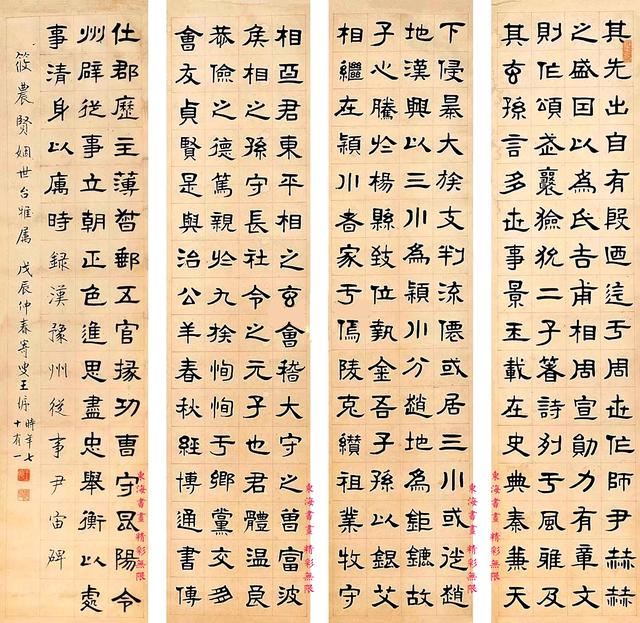 其先出自有殷迺迄于周世作師尹赫赫
之盛因以為氏吉甫相周宣勛力有章文
則作頌武襄獫狁二子著詩列于風雅及
其玄孫言多世事景王載在史典秦兼天
下侵暴大族支判流僊或居三川或徙趙
地漢興以三川為潁川分趙地為鉅鏕故
子心騰於楊縣致位執金吾子孫以銀艾
相繼在潁川者家于傿陵克纘祖業牧守
相亞君東平相之玄會稽大守之曾富波
侯相之孫守長社令之元子也君體溫良
恭儉之德篤親於九族恂恂于鄉黨交多
會友貞賢是與治公羊春秋經博通書傳
仕郡歷主薄督郵五官掾功曹守昆陽令
州辟從事立朝正色進思盡忠舉衡以處
事清身以厲時 錄漢豫州從事尹宙碑
筱農賢姻世台雅屬 戊辰仲春寄叟王 時年七十有一
東海書畫 精彩無限
東海書畫 精彩無限
東海書畫 精彩無限